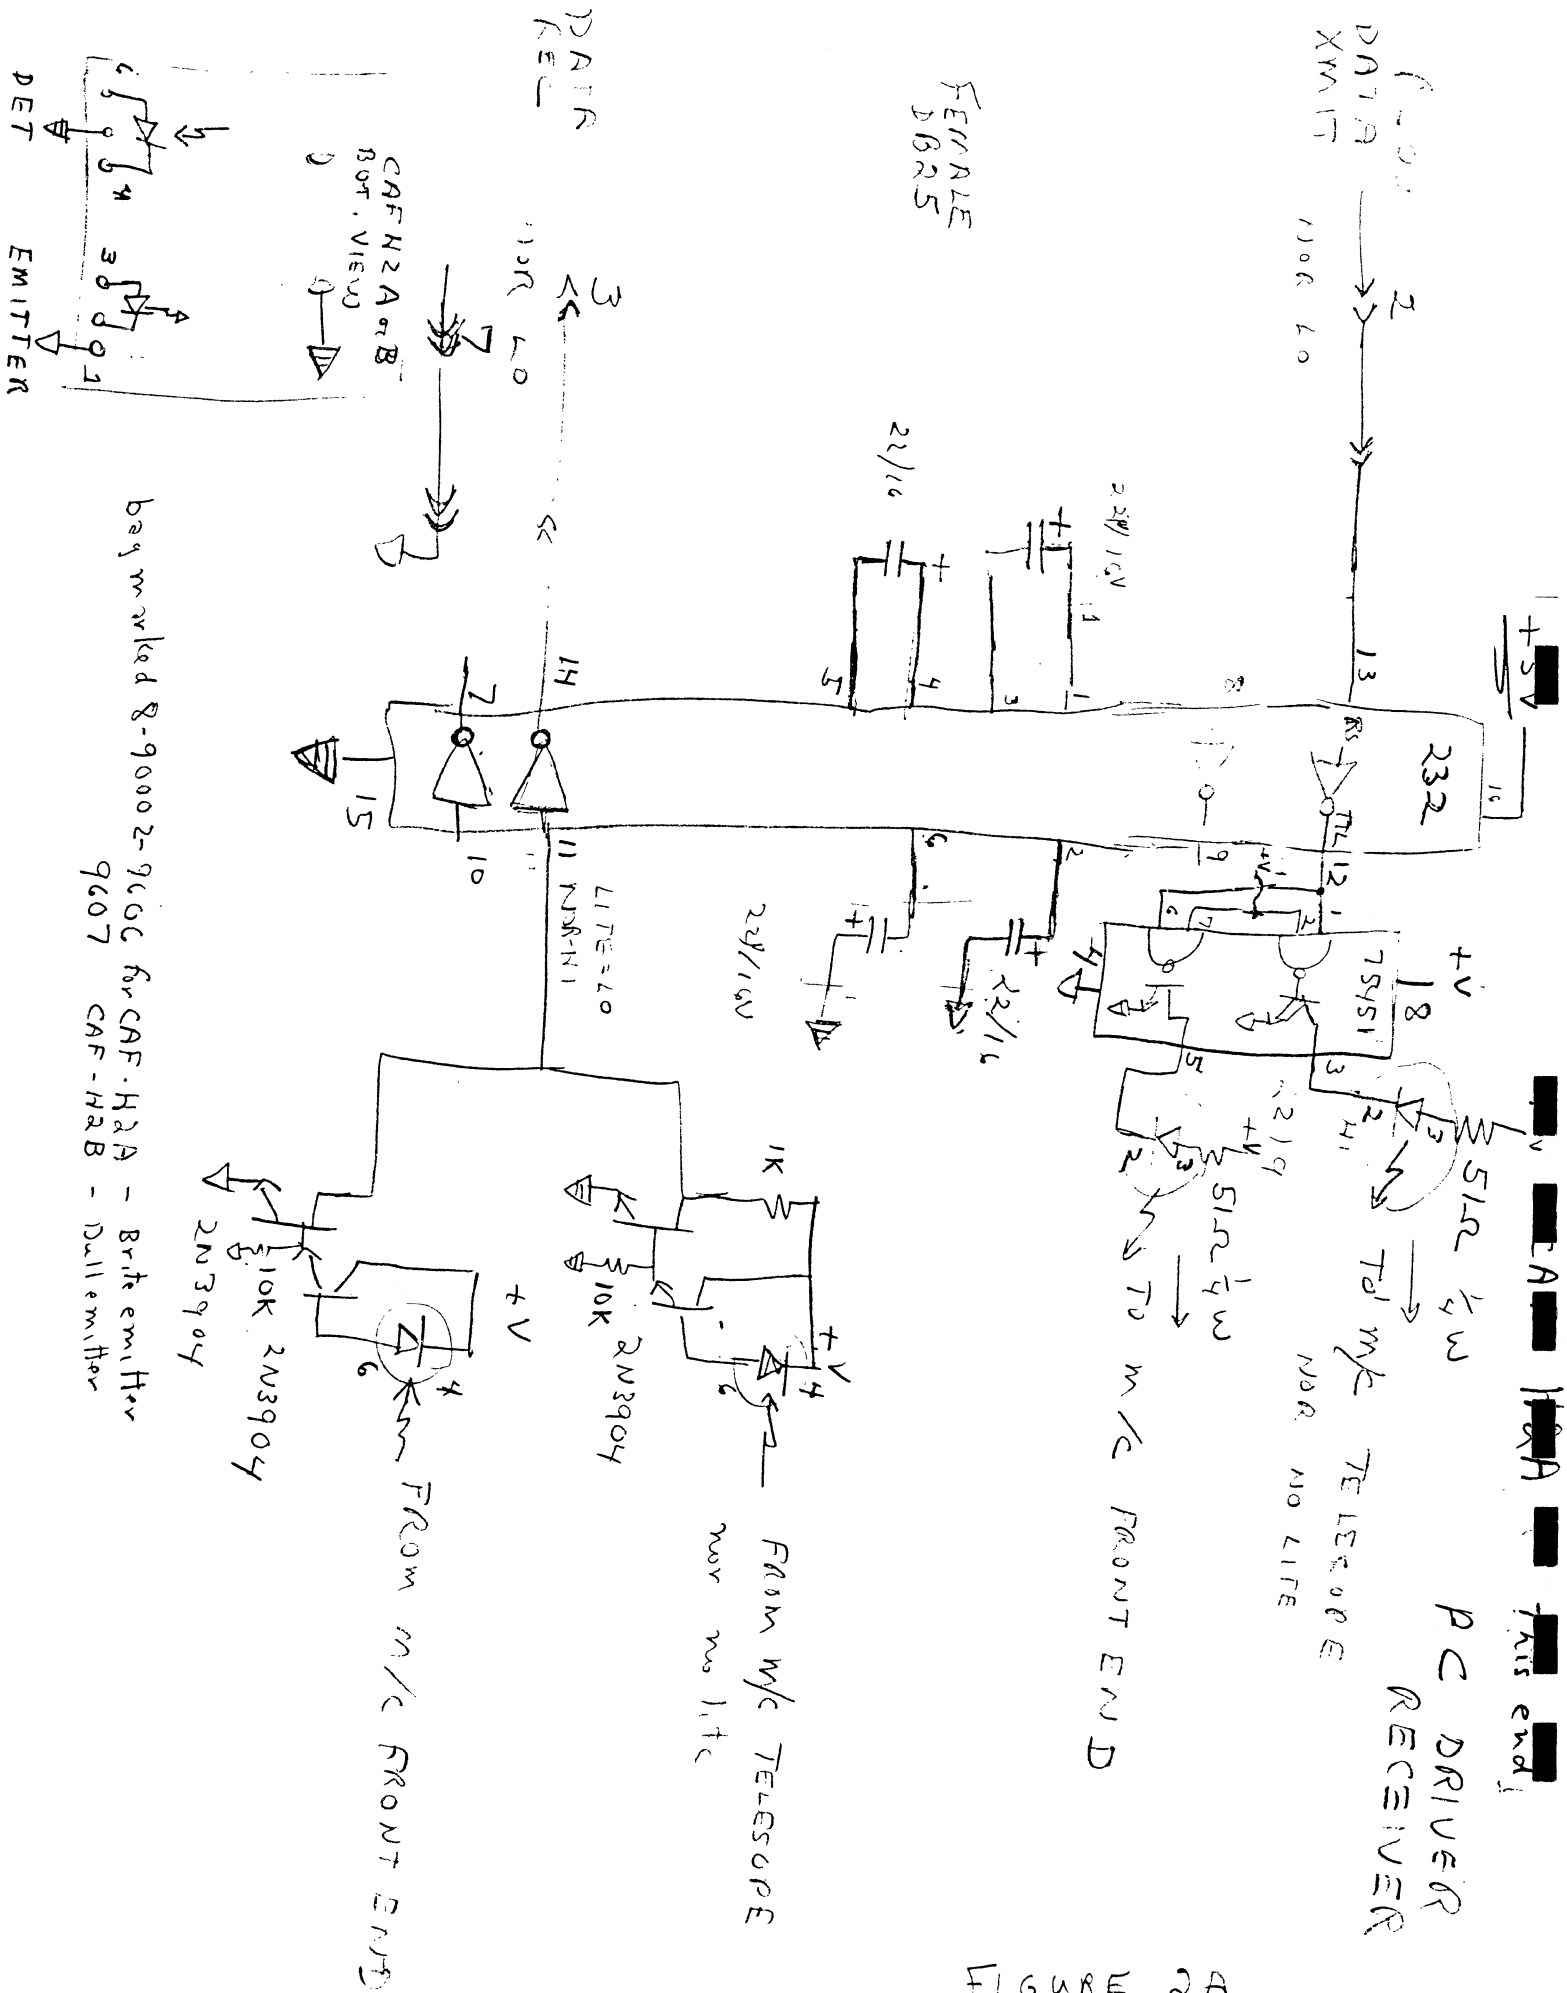 PC DRIVER
RECEIVER
this end
+5V
DATA
XMIT
2
NOR LO
13
16
232
RS
TTL
12
8
9
+V
1
2
6
7
+V
8
75451
4
3
5
2
3
51Ω ¼W
HI
TO M/C TELESCOPE
NOR NO LITE
+V
2
3
51Ω ¼W
TO M/C FRONT END
FEMALE
DB25
22µ/16V
+
1
3
22/16
+
4
5
2
+
22/16
6
+
22µ/16V
DATA
REC
3
NOR LO
7
14
7
11
10
15
LITE=LO
NOR-HI
1K
+V
4
6
10K
2N3904
FROM M/C TELESCOPE
nor no lite
+V
4
6
10K
2N3904
2N3904
FROM M/C FRONT END
CAF H2A or B
BOT. VIEW
6
4
3
1
DET
EMITTER
bag marked 8-90002-9606 for CAF-H2A - Brite emitter
9607 CAF-H2B - Dull emitter
FIGURE 2A